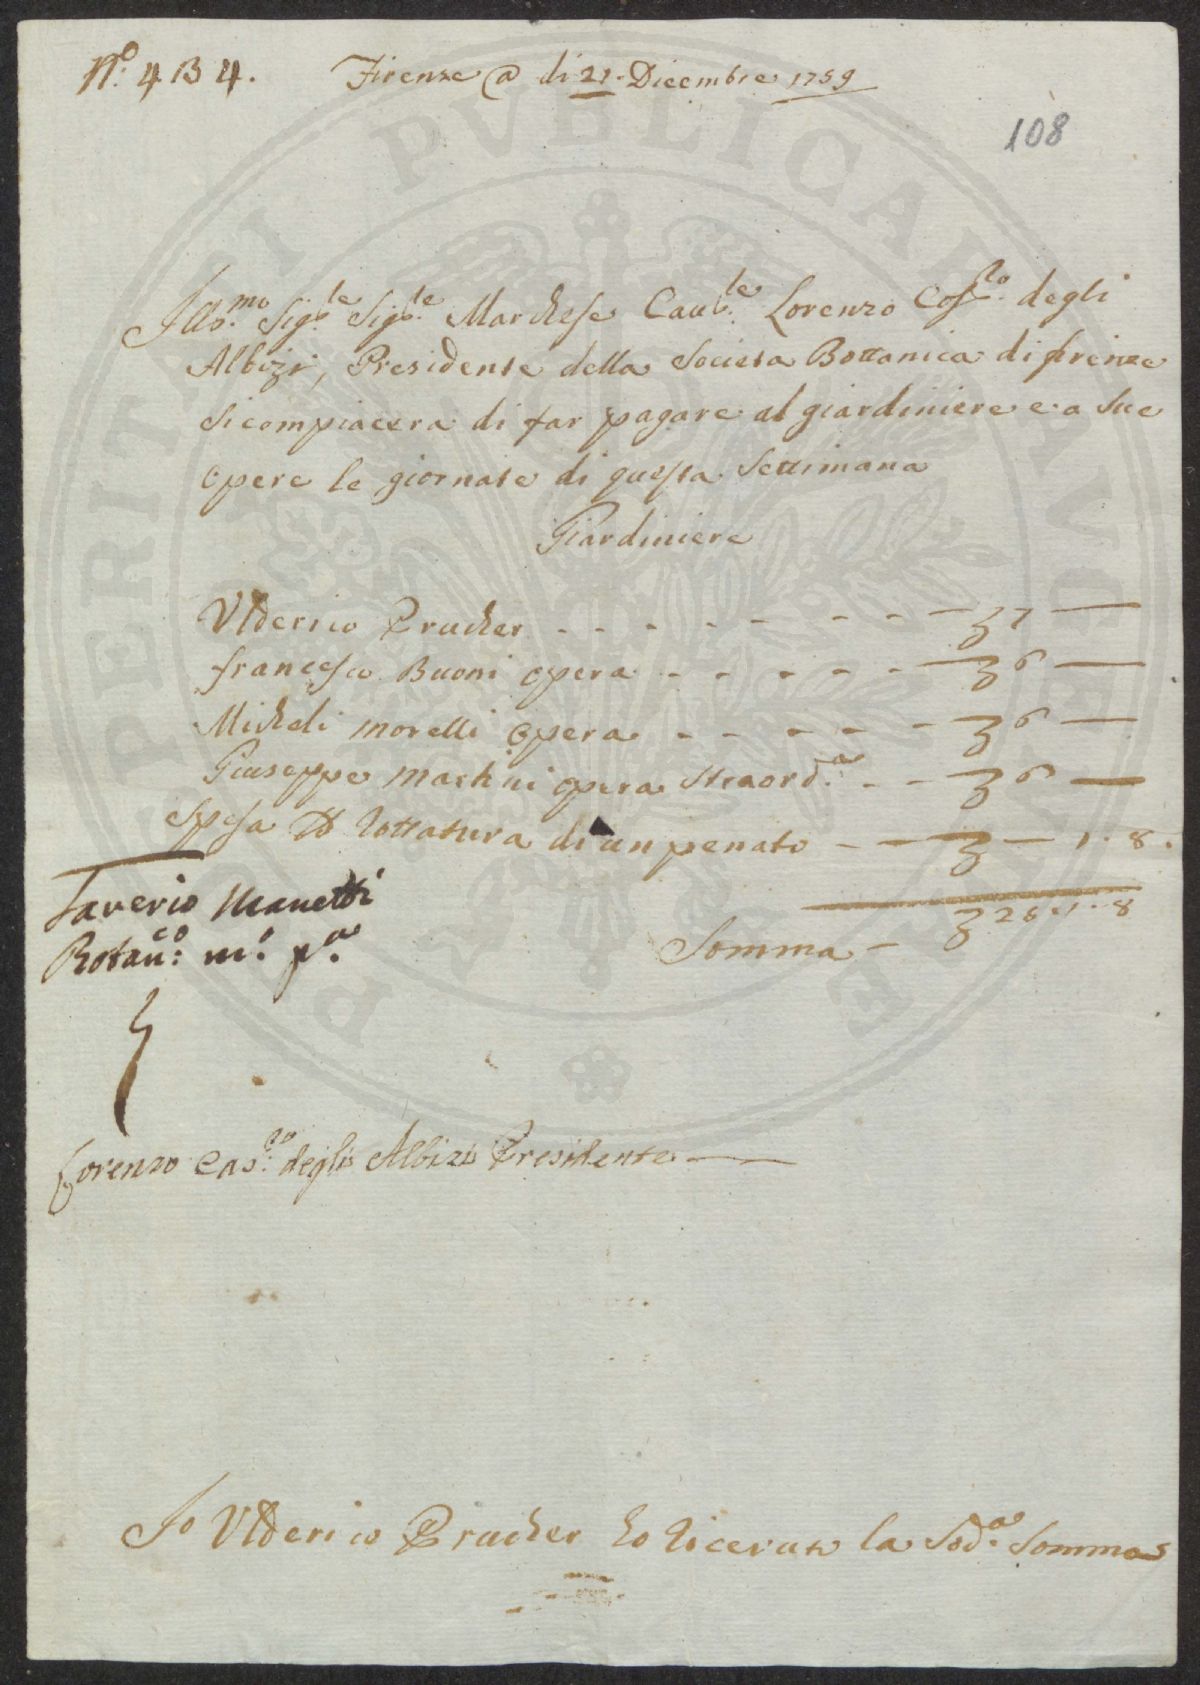 N.º 434. Firenze @ di 21. Dicembre 1759
108
Ill.mo Sig.le Sig.le Marchese Cau.le Lorenzo Cos.lo degli
Albizi, Presidente della Societa Bottanica di firenze
si compiacera di far pagare al giardiniere e a Sue
opere le giornate di questa Settimana
Giardiniere
Ulderico Prucher - - - - - - - - 7 —
francesco Buoni opera - - - - - - 6 —
Micheli morelli opera - - - - - - 6 —
Giuseppe martini opera straord.a - - - 6 —
spesa di Rottatura di un penato - - - — 1. 8.
Saverio Manetti
Botan.co m.o p.a
Somma - 26. 1. 8
Lorenzo Cas. degli Albizi Presidente —
Io Ulderico Prucher ho Riceruto la Sod.a Somma
PROSPERITATI PVBLICAE AVGENDAE